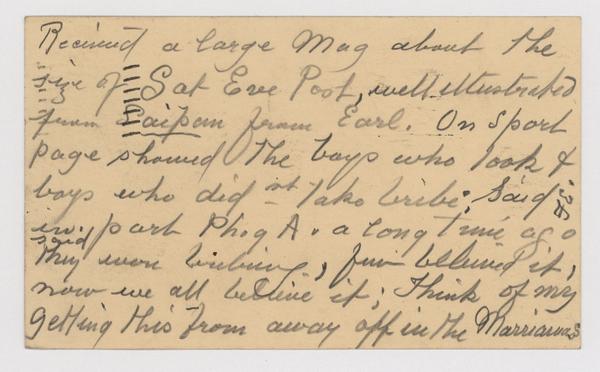 Received a large Mag about the
size of Sat Eve Post, well illustrated
from Saipan from Earl. On Sport
page showed the boys who took &
boys who did not take bribe. Said
in part Ph. & A. a long time ago
said they were bribing, few believed it,
now we all believe it; Think of my
getting this from away off in the Marrianas